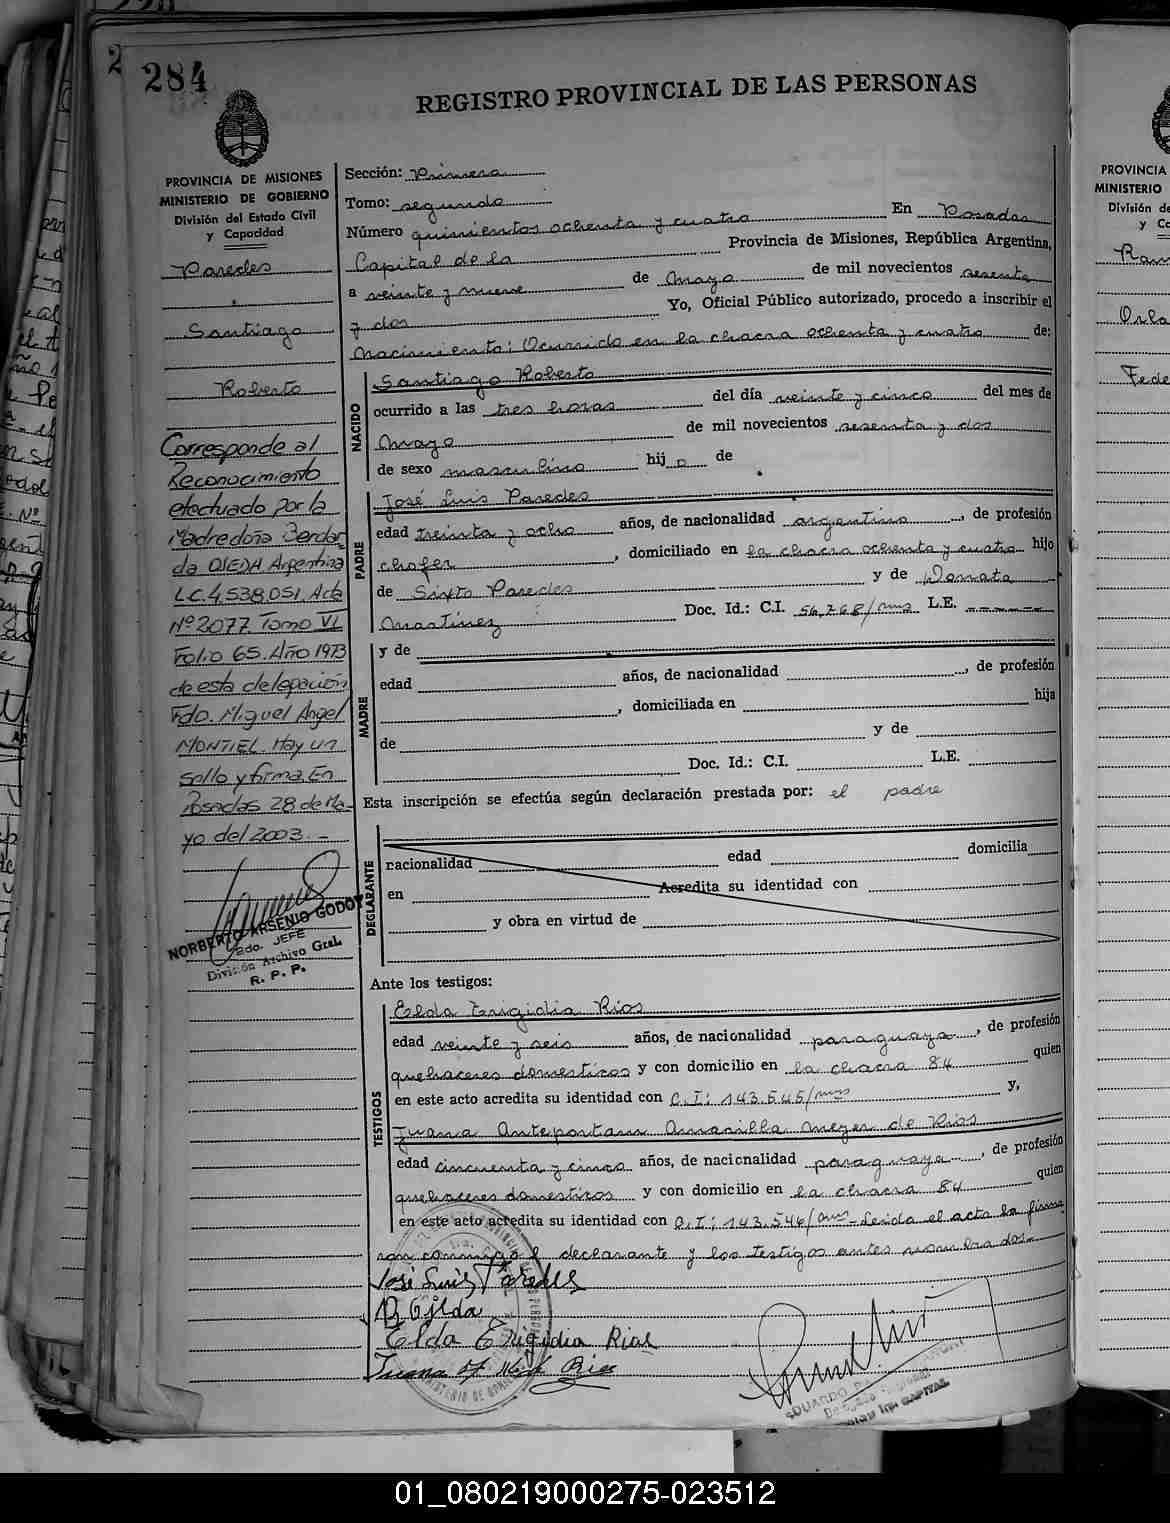 284
REGISTRO PROVINCIAL DE LAS PERSONAS
PROVINCIA DE MISIONES
MINISTERIO DE GOBIERNO
División del Estado Civil
y Capacidad
Paredes
Santiago
Roberto
Corresponde al
Reconocimiento
efectuado por la
Madre doña
OJEDA Argentina
L.C. 4.538.051. Acta
Nº 2077. Tomo VI
Folio 65. Año 1973
de esta delegación
Fdo. Miguel Angel
MONTIEL. Hay un
sello y firma. En
Posadas 28 de Ma-
yo del 2003.-
NORBERTO ARSENIO GODOY
2do. JEFE
División Archivo Gral.
R. P. P.
Sección: Primera
Tomo: segundo
Número quinientos ochenta y cuatro En Posadas
Capital de la Provincia de Misiones, República Argentina,
a veinte y nueve de Mayo de mil novecientos sesenta
y dos Yo, Oficial Público autorizado, procedo a inscribir el
nacimiento: Ocurrido en la chacra ochenta y cuatro de:
NACIDO
Santiago Roberto
ocurrido a las tres horas del día veinte y cinco del mes de
Mayo de mil novecientos sesenta y dos
de sexo masculino hijo de
PADRE
José Luis Paredes
edad treinta y ocho años, de nacionalidad argentino, de profesión
chofer, domiciliado en la chacra ochenta y cuatro hijo
de Sixto Paredes y de Donata
Martínez Doc. Id.: C.I. 56.768/mns L.E. ------
MADRE
y de
edad años, de nacionalidad , de profesión
, domiciliada en hija
de y de
Doc. Id.: C.I. L.E.
Esta inscripción se efectúa según declaración prestada por: el padre
DECLARANTE
nacionalidad edad domicilia
en Acredita su identidad con
y obra en virtud de
Ante los testigos:
TESTIGOS
Elda Erigidia Rios
edad veinte y seis años, de nacionalidad paraguaya, de profesión
quehaceres domesticos y con domicilio en la chacra 84 quien
en este acto acredita su identidad con C.I: 143.545/mns y,
Juana Anteportam Amarilla Meyer de Rios
edad cincuenta y cinco años, de nacionalidad paraguaya, de profesión
quehaceres domesticos y con domicilio en la chacra 84 quien
en este acto acredita su identidad con C.I: 143.546/mns-Leida el acta la firma
ron conmigo el declarante y los testigos antes nombrados-
José Luis Paredes
Elda Erigidia Rios
Juana
EDUARDO
CAPITAL
PROVINCIA
MINISTERIO
División de
y Ca
01_080219000275-023512